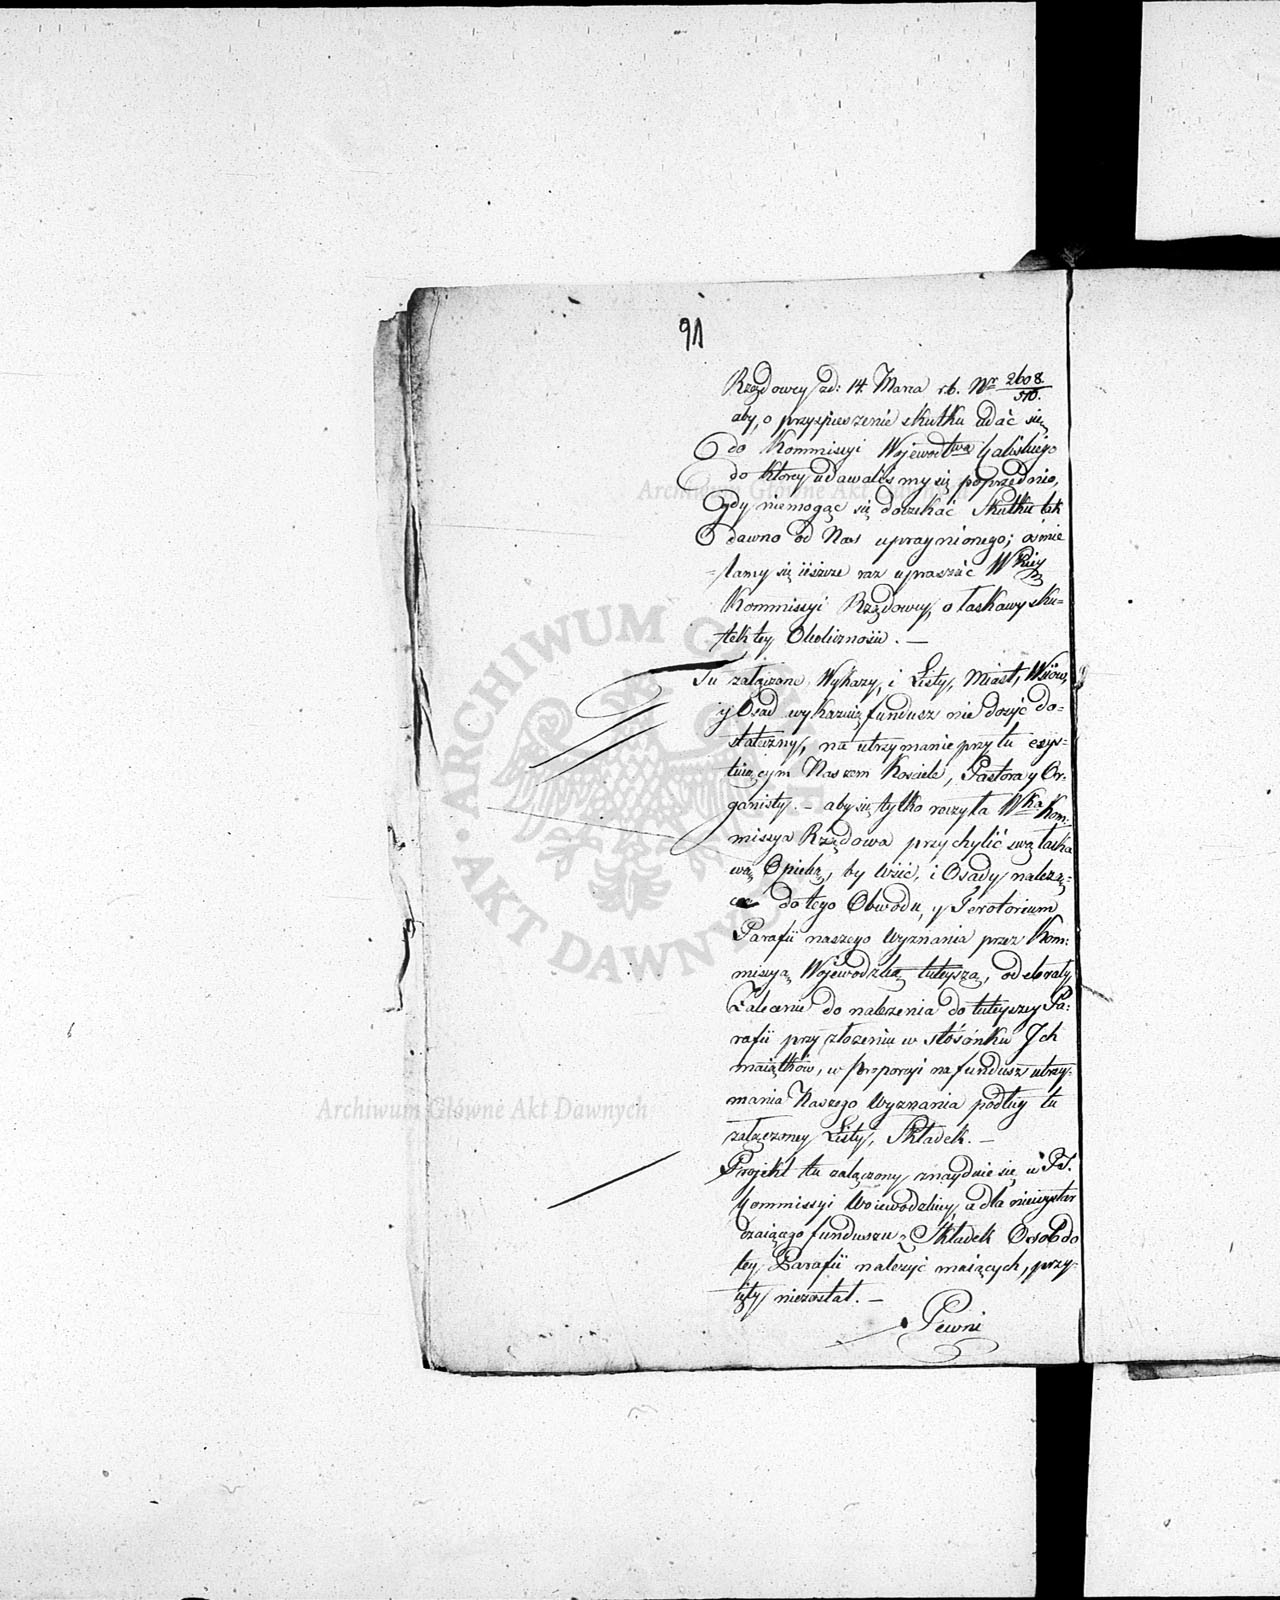 91
Rządowey zd: 14. Marca r.b. Nr 2608/510.
aby, o przyspieszenie skutku udać się
do Kommissyi Wojewodtwa Kaliskiego
do którey udawaliśmy się poprzednio,
Gdy niemogąc się doczekać Skutku tak
dawno od Nas upragnionego; ośmie
=lamy się ieszcze raz upraszać
Kommissyi Rządowey, o łaskawy sku=
tek tey Okoliczności. —
Tu załączone Wykazy, i Listy, Miast, Wsiów,
y Osad wykazuią fundusz nie dosyć do=
stateczny, na utrzymanie przy tu exys=
tuiącym Naszem Kościele, Pastora y Or=
ganisty. — aby się tylko raczyła Wka Kom:
missya Rządowa przychylić swą łaska
wą Opieką, by Wsie, i Osady należą=
ce do tego Obwodu, y Terotorium
Parafii naszego Wyznania przez Kom:
missyą Wojewodzką tuteyszą, odebrały
Zalecenie do należenia do tuteyszey Pa=
rafii przy złożeniu w stósónku Jch
maiątków, w proporcyi na fundusz utrzy=
mania Naszego Wyznania podług tu
załączoney Listy, Składek. —
Projekt tu załączony znayduie się w Pś.
Kommissyi Woiewodzkiey, a dla niewystar
czaiącego funduszu z Składek Osób do
tey Parafii należyć maiących, przy=
ięty niezostał. —
Pewni
Archiwum Główne Akt Dawnych
ARCHIWUM GŁÓWNE · AKT DAWNYCH ·
Archiwum Główne Akt Dawnych